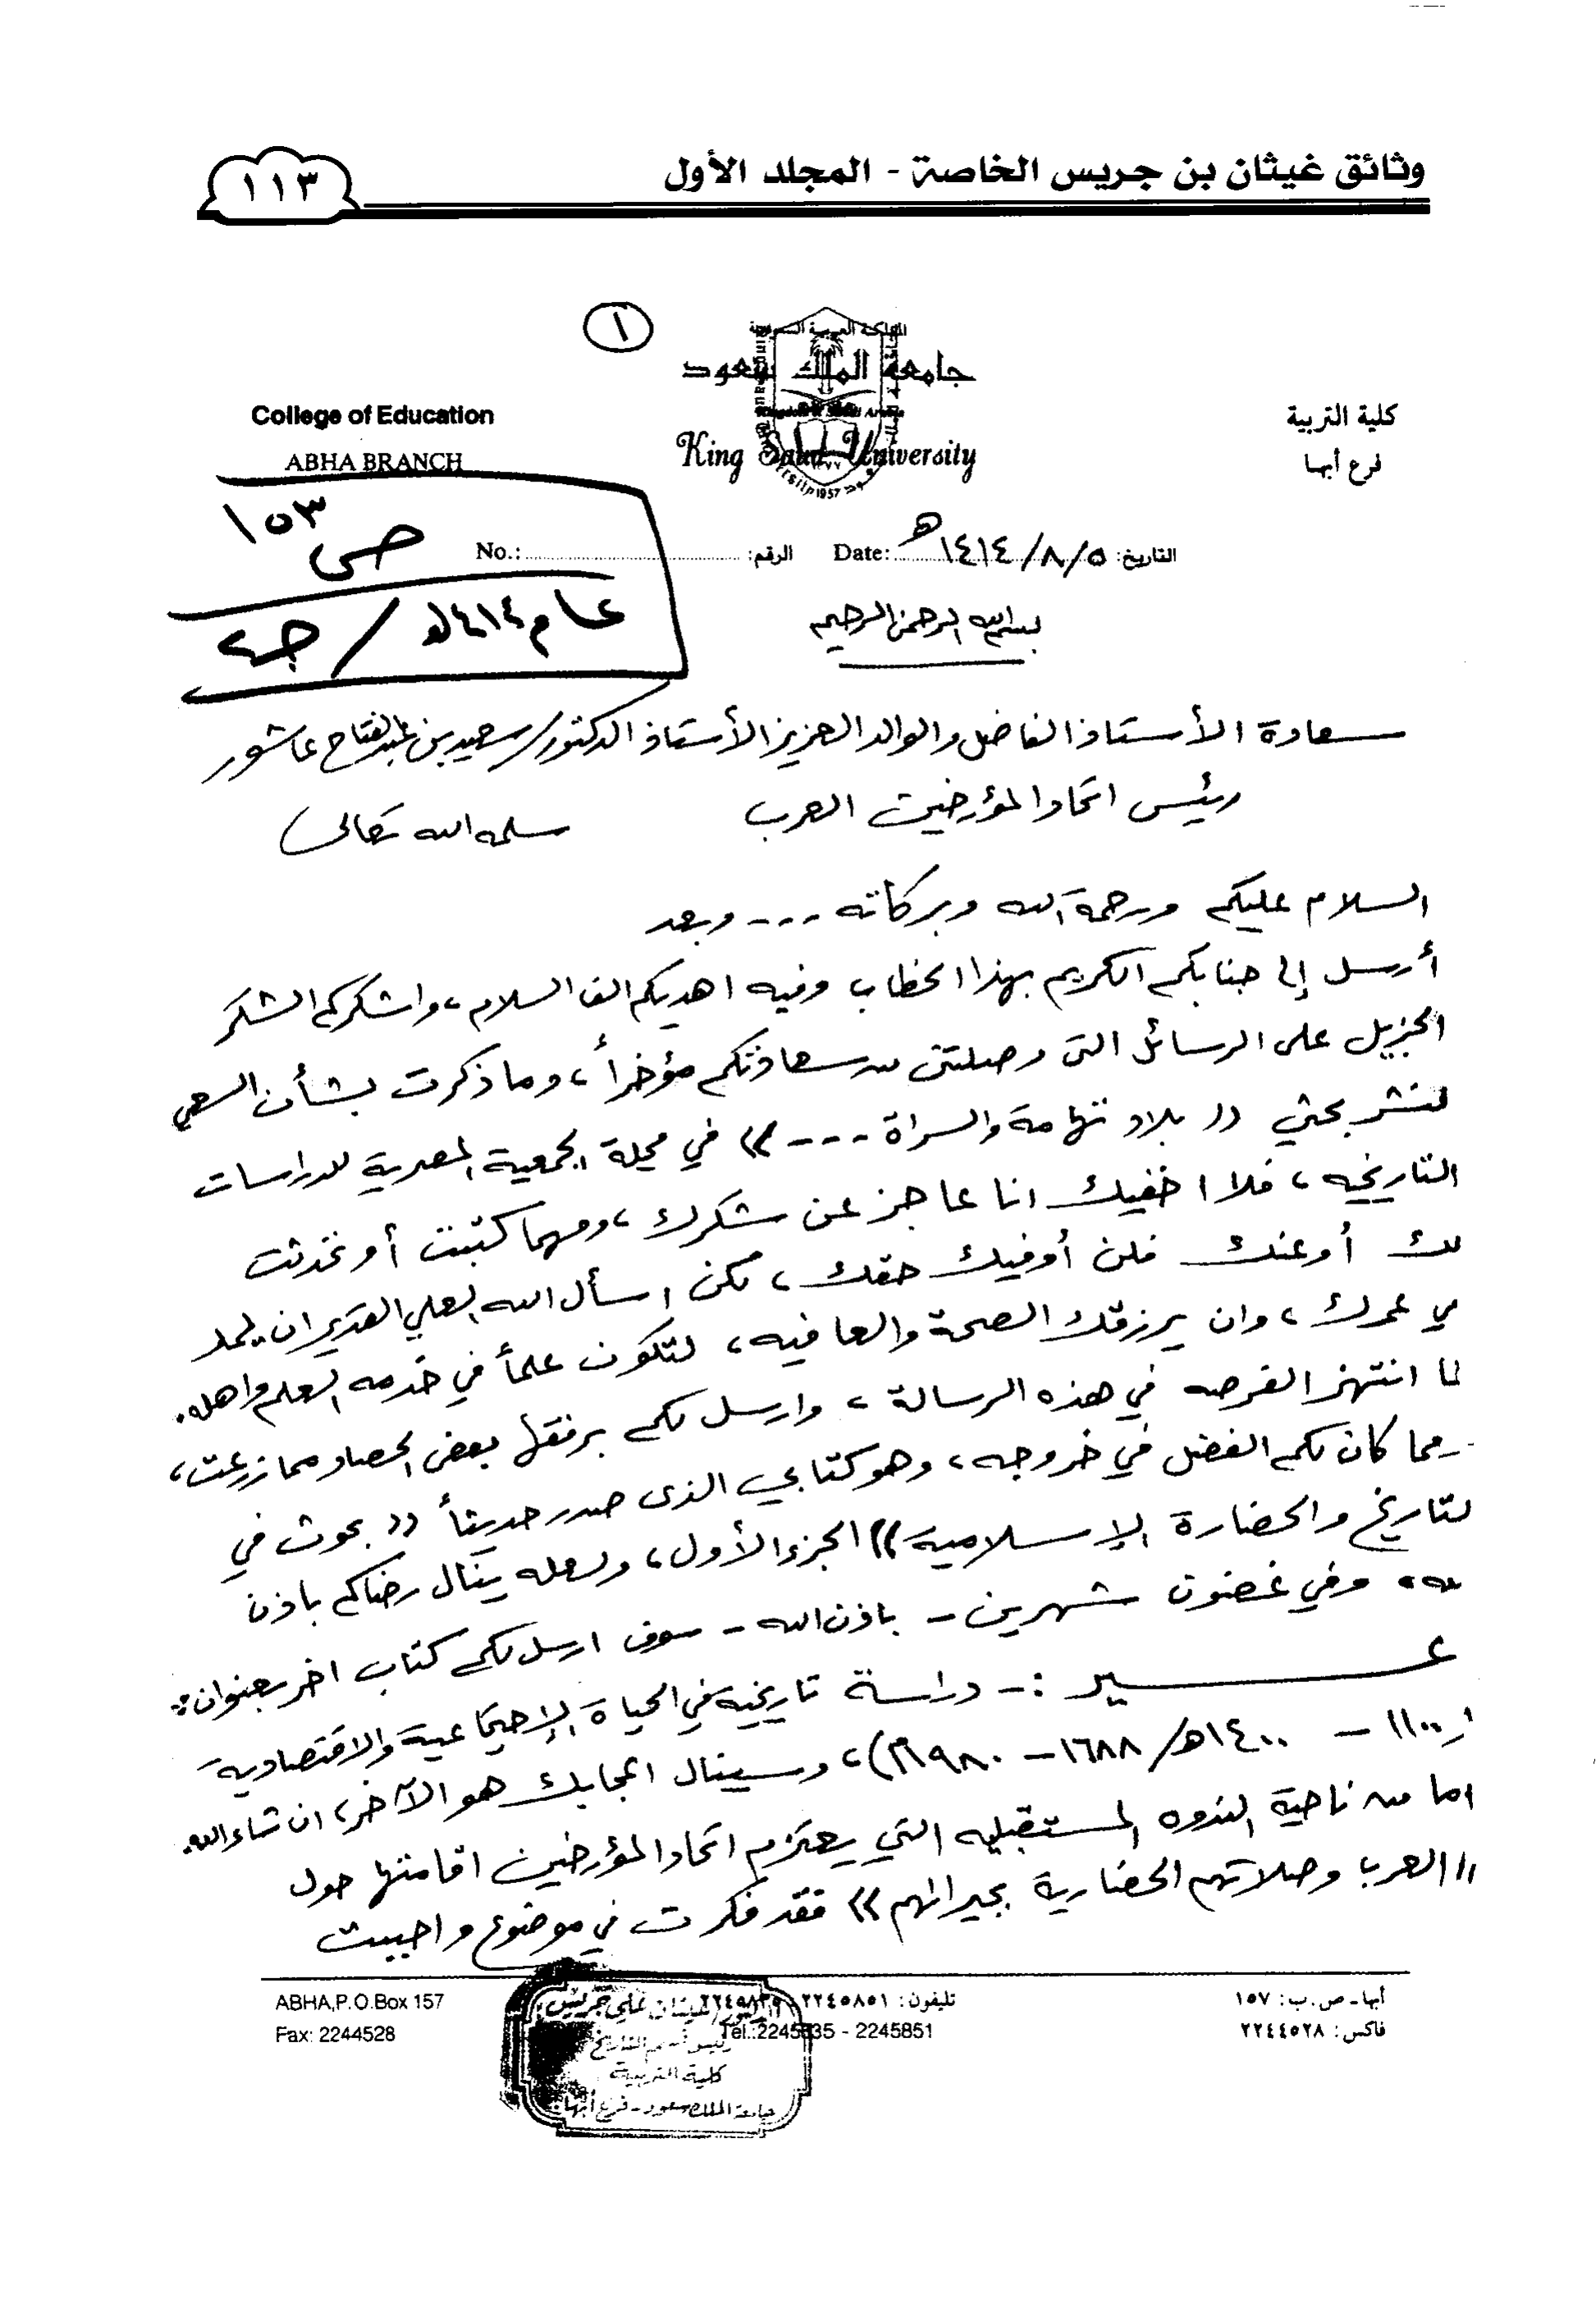 وثائق غيثان بن جريس الخاصة - المجلد الأول
١١٣
١
المملكة العربية السعودية
جامعة الملك سعود
King Saud University
1957
College of Education
ABHA BRANCH
كلية التربية
فرع أبها
ص ١٥٣
عام ١٤١٤هـ / جـ٢
No.: الرقم:
Date: ١٤١٤/٨/٥هـ التاريخ:
بسم الله الرحمن الرحيم
سعادة الأستاذ الفاضل والوالد العزيز الأستاذ الدكتور/ سعيد بن عبدالفتاح عاشور
رئيس اتحاد المؤرخين العرب
سلمه الله تعالى
السلام عليكم ورحمة الله وبركاته --- وبعد
أرسل إلى جنابكم الكريم بهذا الخطاب وفيه اهديكم الف السلام، واشكركم الشكر
الجزيل على الرسائل التي وصلتني من سعادتكم مؤخراً، وما ذكرت بشأن السعي
لنشر بحثي (( بلاد تهامة والسراة --- )) في مجلة الجمعية المصرية للدراسات
التاريخيه، فلا اخفيك انا عاجز عن شكرك، ومهما كتبت أو تحدثت
لك أو عنك فلن أوفيك حقك، لكن اسأل الله العلي القدير ان يمد
في عمرك، وان يرزقك الصحة والعافيه، لتكون علماً في خدمه العلم واهله.
كما انتهز الفرصه في هذه الرسالة، وارسل لكم برفقها بعض الحصاد مما زرعت،
ومما كان لكم الفضل في خروجه، وهو كتابي الذى صدر حديثاً (( بحوث في
التاريخ والحضارة الإسلامية)) الجزء الأول، ولعله ينال رضاكم باذن
الله، وفي غضون شهرين - باذن الله - سوف ارسل لكم كتاب اخر بعنوان:
عسير :- دراسة تاريخية في الحياة الإجتماعية والاقتصادية
(١١٠٠ - ١٤٠٠هـ/ ١٦٨٨ - ١٩٨٠م)، وسينال اعجابك هو الآخر، ان شاء الله.
اما من ناحية الندوه المستقبليه التي يعتزم اتحاد المؤرخين اقامتها حول
((العرب وصلاتهم الحضارية بجيرانهم)) فقد فكرت في موضوع واحببت
ABHA,P.O.Box 157
Fax: 2244528
تليفون: ٢٢٤٥٨٥١ - ٢٢٤٥٨٣٥
Tel.:2245835 - 2245851
أبها-ص.ب: ١٥٧
فاكس: ٢٢٤٤٥٢٨
الدكتور/ غيثان علي جريس
رئيس قسم التاريخ
كلية التربية
جامعة الملك سعود - فرع أبها